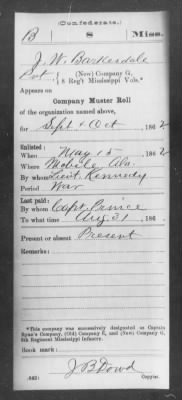 (Confederate.)
B 8 Miss.
J. W. Barkesdale
Pvt., { (New) Company G,
8 Reg't Mississippi Vols.*
Appears on
Company Muster Roll
of the organization named above,
for Sept & Oct, 1862
Enlisted:
When May 15, 1862
Where Mobile Ala.
By whom Lieut. Kennedy
Period War
Last paid:
By whom Capt. Prince
To what time Aug. 31, 186
Present or absent Present
Remarks:
*This company was successively designated as Captain
Ryan's Company, (Old) Company C, and (New) Company G,
8th Regiment Mississippi Infantry.
Book mark:
(642) J B Dowd
Copyist.